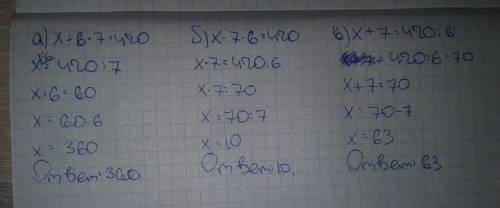 а) x:6·7=420
x:6=420:7
x:6=60
x=60·6
x=360
Ответ:360
б) x·7·6=420
x·7=420:6
x·7=70
x=70:7
x=10
Ответ:10.
в) x+7=420:6
420:6=70
x+7=70
x=70-7
x=63
Ответ:63